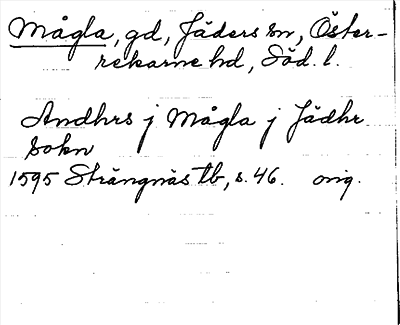 Mågla, gd, Jäders sn, Öster-
rekarne hd, Söd. l.
Andhrs j Mågla j Jädhr
sokn
1595 Strängnäs tb, s. 46. orig.